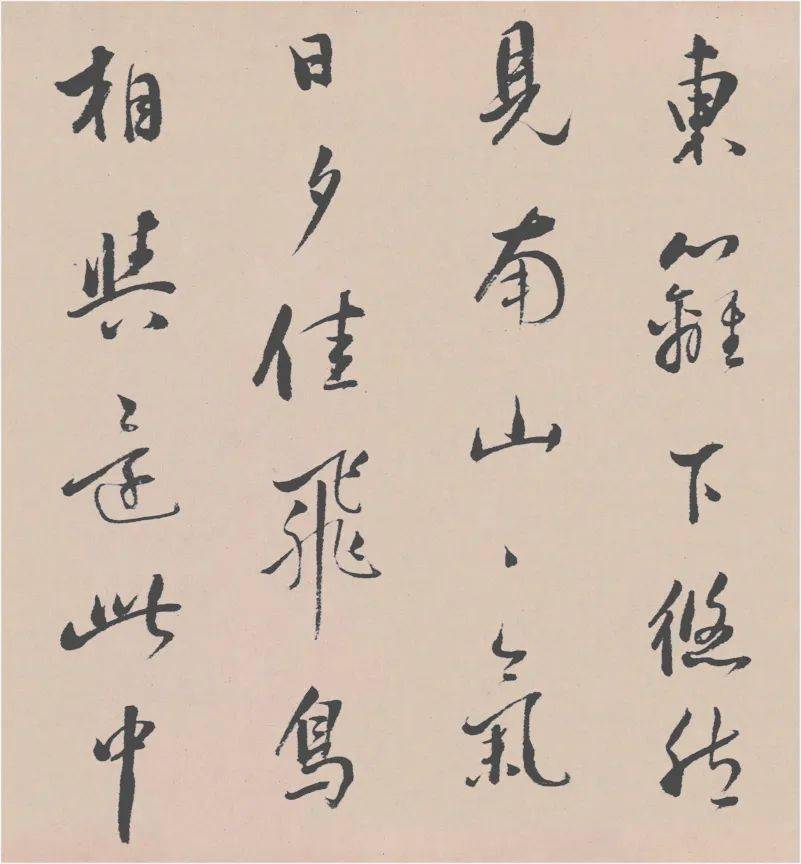 東籬下悠然
見南山山氣
日夕佳飛鳥
相與還此中